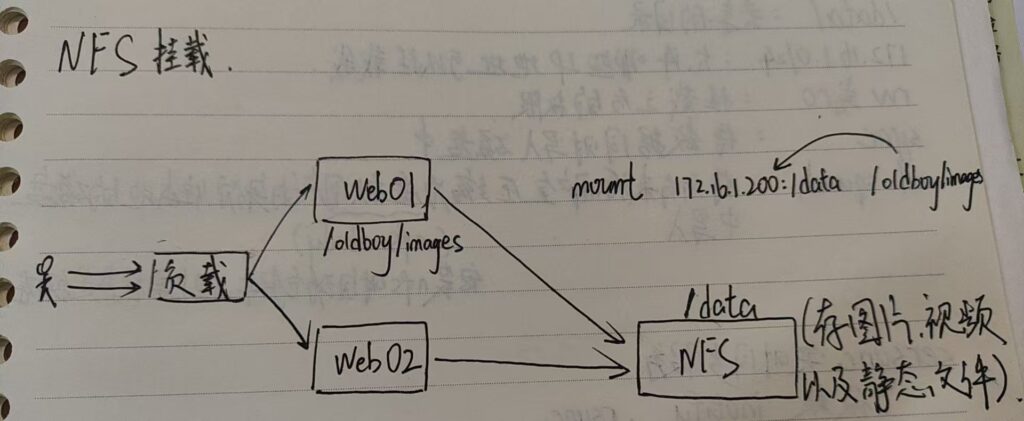 NFS 挂载.
web01
mount 172.16.1.200:/data /oldboy/images
/oldboy/images
负载
/data
web02
NFS
(存图片.视频
以及静态文件).